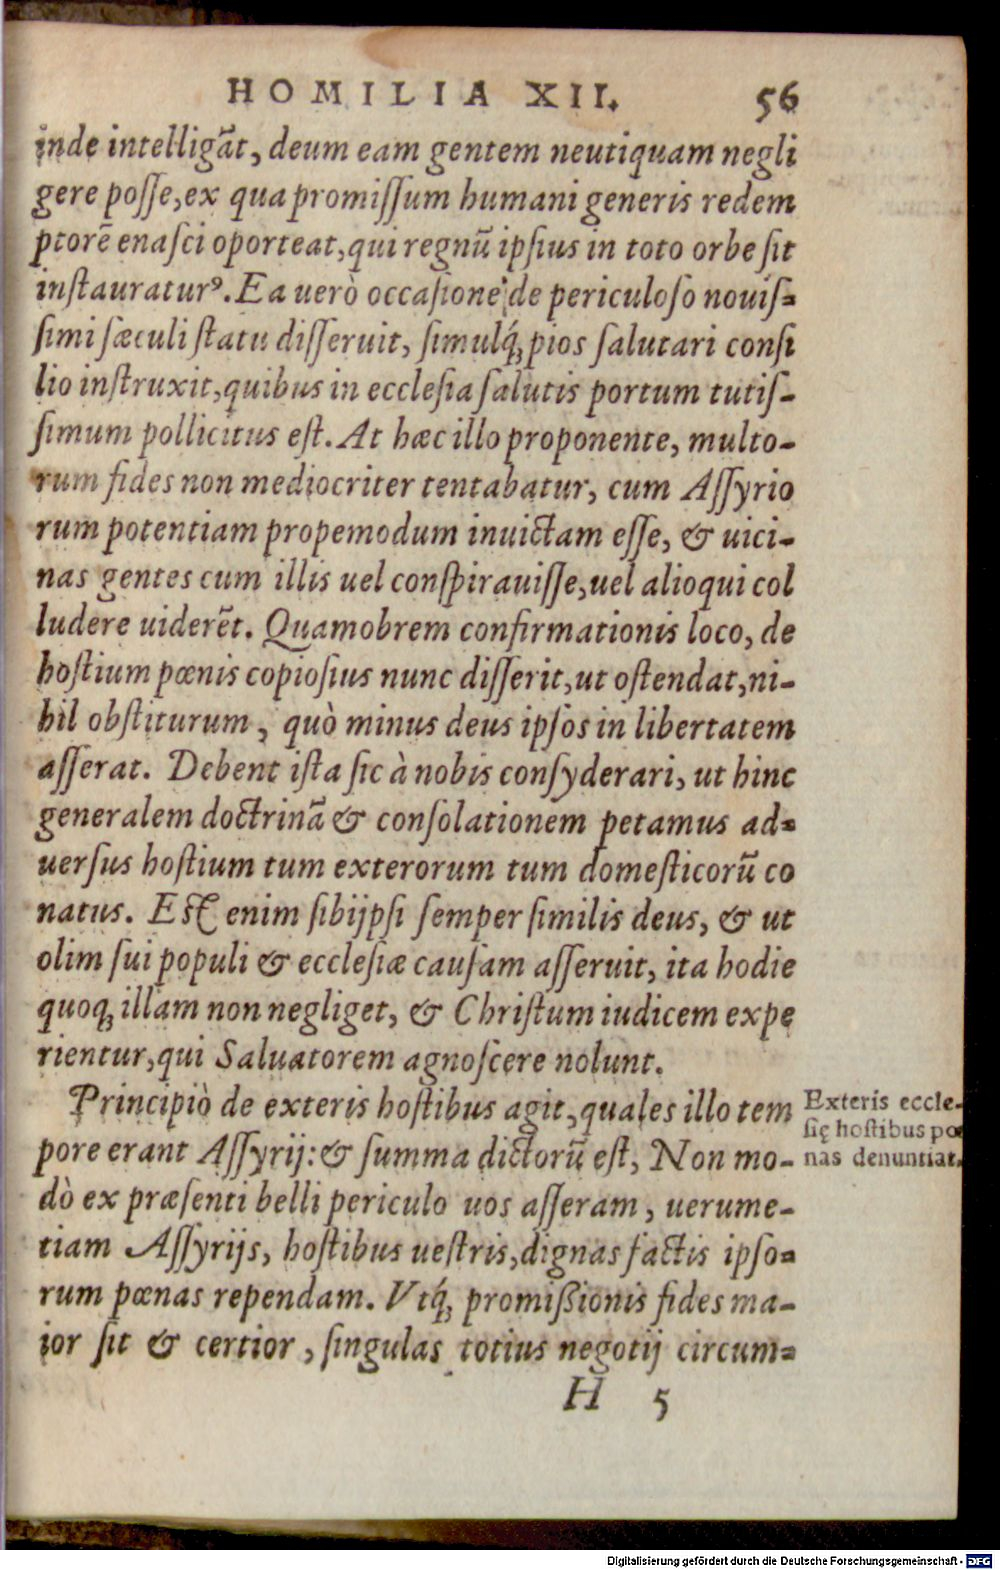 HOMILIA XII. 56
inde intelligāt, deum eam gentem neutiquam negli
gere posse, ex qua promissum humani generis redem
ptorē enasci oporteat, qui regnū ipsius in toto orbe sit
instauraturꝰ. Ea uerò occasione de periculoso nouis=
simi sæculi statu disseruit, simulq́ꝫ pios salutari consi
lio instruxit, quibus in ecclesia salutis portum tutis-
simum pollicitus est. At hæc illo proponente, multo-
rum fides non mediocriter tentabatur, cum Assyrio
rum potentiam propemodum inuictam esse, & uici-
nas gentes cum illis uel conspirauisse, uel alioqui col
ludere uiderēt. Quamobrem confirmationis loco, de
hostium pœnis copiosius nunc disserit, ut ostendat, ni-
hil obstiturum, quò minus deus ipsos in libertatem
asserat. Debent ista sic à nobis consyderari, ut hinc
generalem doctrinā & consolationem petamus ad=
uersus hostium tum exterorum tum domesticorū co
natus. Est enim sibijpsi semper similis deus, & ut
olim sui populi & ecclesiæ causam asseruit, ita hodie
quoqꝫ illam non negliget, & Christum iudicem expe
rientur, qui Saluatorem agnoscere nolunt.
Principiò de exteris hostibus agit, quales illo tem
pore erant Assyrij: & summa dictorū est, Non mo-
dò ex præsenti belli periculo uos asseram, uerume-
tiam Assyrijs, hostibus uestris, dignas factis ipso=
rum pœnas rependam. Vtq́ꝫ promißionis fides ma-
ior sit & certior, singulas totius negotij circum=
H 5
Exteris eccle-
się hostibus pœ
nas denuntiat.
Digitalisierung gefördert durch die Deutsche Forschungsgemeinschaft - DFG